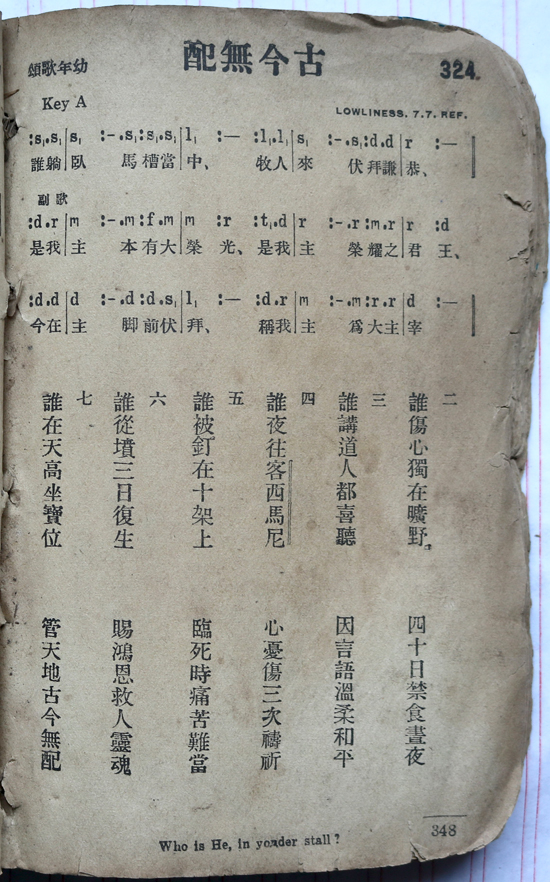 324.
古今無配
幼年歌頌
Key A
LOWLINESS. 7.7. REF.
:s₁.s₁|s₁ :-.s₁:s₁.s₁|l₁ :— :l₁.l₁|s₁ :-.s₁:d.d|r :—
誰躺|臥 馬槽當|中、 牧人|來 伏拜謙|恭、
副歌
:d.r|m :-.m:f.m|m :r :t₁.d|r :-.r:m.r|r :d
是我|主 本有大|榮 光、是我|主 榮耀之|君 王、
:d.d|d :-.d:d.s₁|l₁ :— :d.r|m :-.m:r.r|d :—
今在|主 脚前伏|拜、 稱我|主 爲大主|宰
二
誰傷心獨在曠野。 四十日禁食晝夜
三
誰講道人都喜聽 因言語溫柔和平
四
誰夜往客西馬尼 心憂傷三次禱祈
五
誰被釘在十架上 臨死時痛苦難當
六
誰從墳三日復生 賜鴻恩救人靈魂
七
誰在天高坐寶位 管天地古今無配
348
Who is He, in yonder stall?